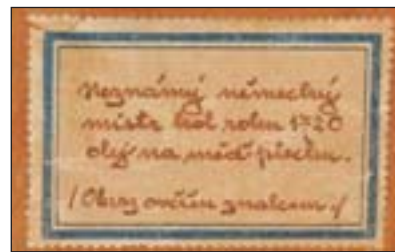 Neznámý německý
mistr kol roku 1720
olej na měď. plechu.
/Obraz ověřen znalcem./